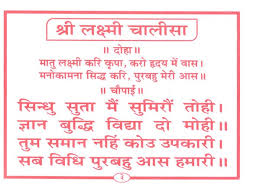 श्री लक्ष्मी चालीसा
॥ दोहा ॥
मातु लक्ष्मी करि कृपा, करो हृदय में वास।
मनोकामना सिद्ध करि, पुरवहु मेरी आस॥
॥ चौपाई ॥
सिन्धु सुता मैं सुमिरौं तोही।
ज्ञान बुद्धि विद्या दो मोही॥
तुम समान नहिं कोउ उपकारी।
सब विधि पुरबहु आस हमारी॥